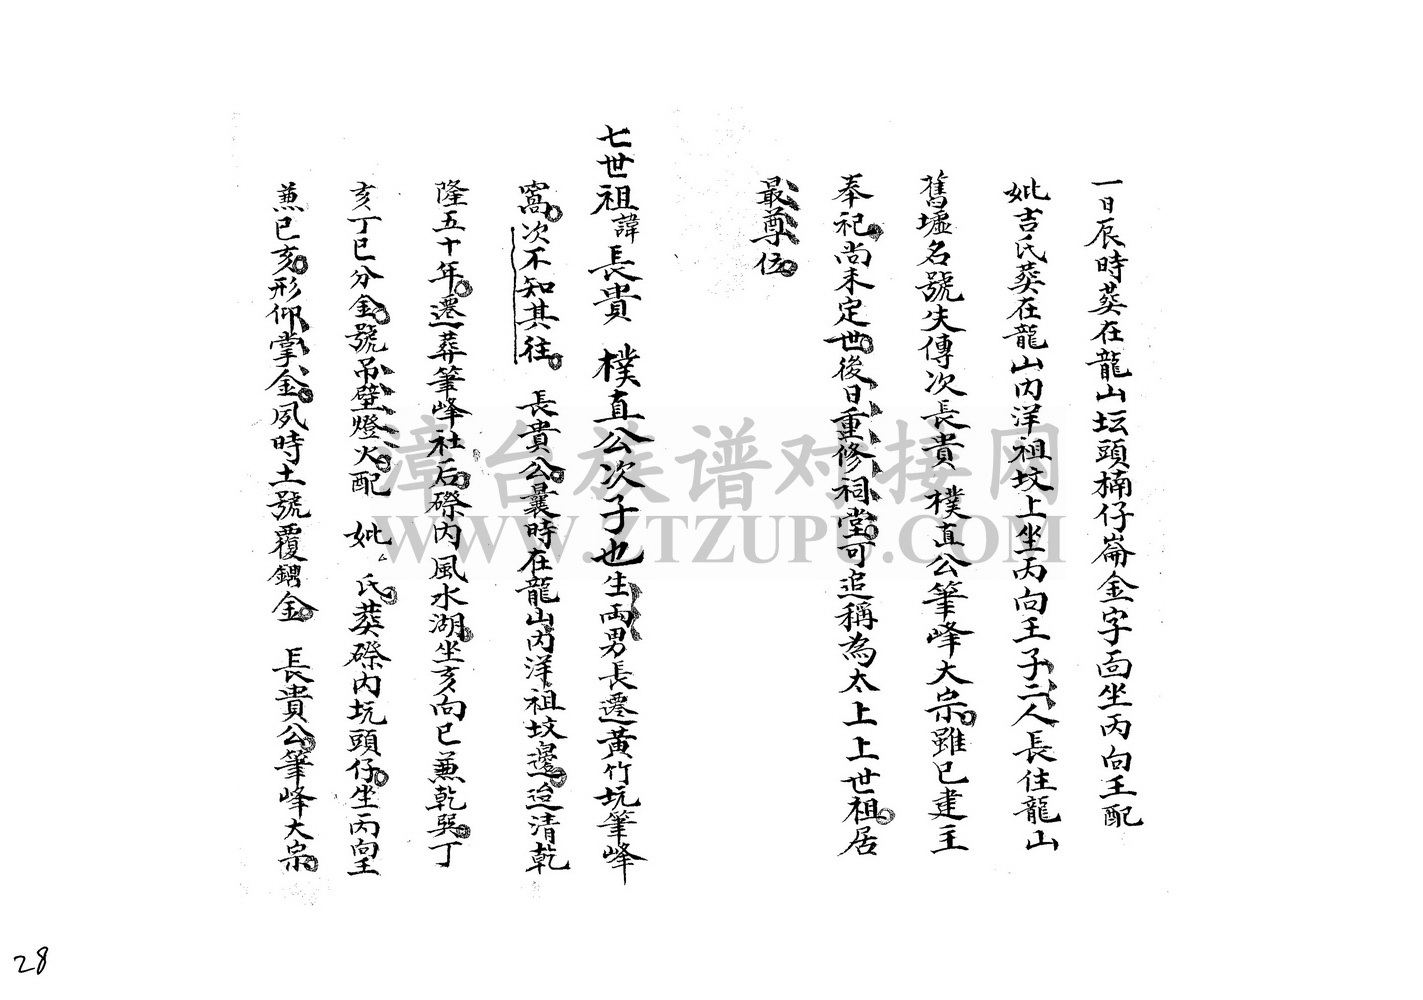 一日辰時葬在龍山坛頭楠仔崙金字面坐丙向王配
妣吉氏葬在龍山内洋祖坟上坐丙向王子二人長住龍山
舊墟名號失傳次長貴 樸直公筆峰大宗雖已建主
奉祀尚未定世後日重修祠堂可追稱為太上上世祖居
最尊位
七世祖諱長貴 樸直公次子也生兩男長遷黃竹坑筆峰
窩次不知其往 長貴公曩時在龍山内洋祖坟邊迨清乾
隆五十年遷葬筆峰社后磜内風水湖坐亥向巳兼乾巽丁
亥丁巳分金號吊壁燈火配 妣 氏葬磜内坑頭仔坐丙向王
兼巳亥形仰掌金夙時土號覆鍋金 長貴公筆峰大宗
漳台族谱对接网
WWW.ZTZUPU.COM
28